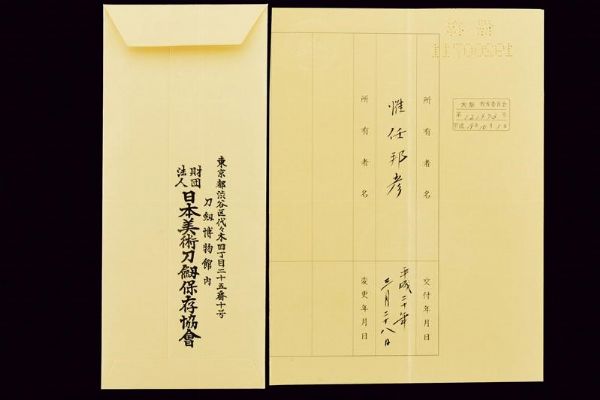 東京都渋谷区代々木四丁目二十五番十号
刀剣博物館内
財団法人
日本美術刀劔保存協會
所有者名
惟任邦彦
所有者名
交付年月日
平成二十年
三月二十八日
変更年月日
教育委員会
第121473号